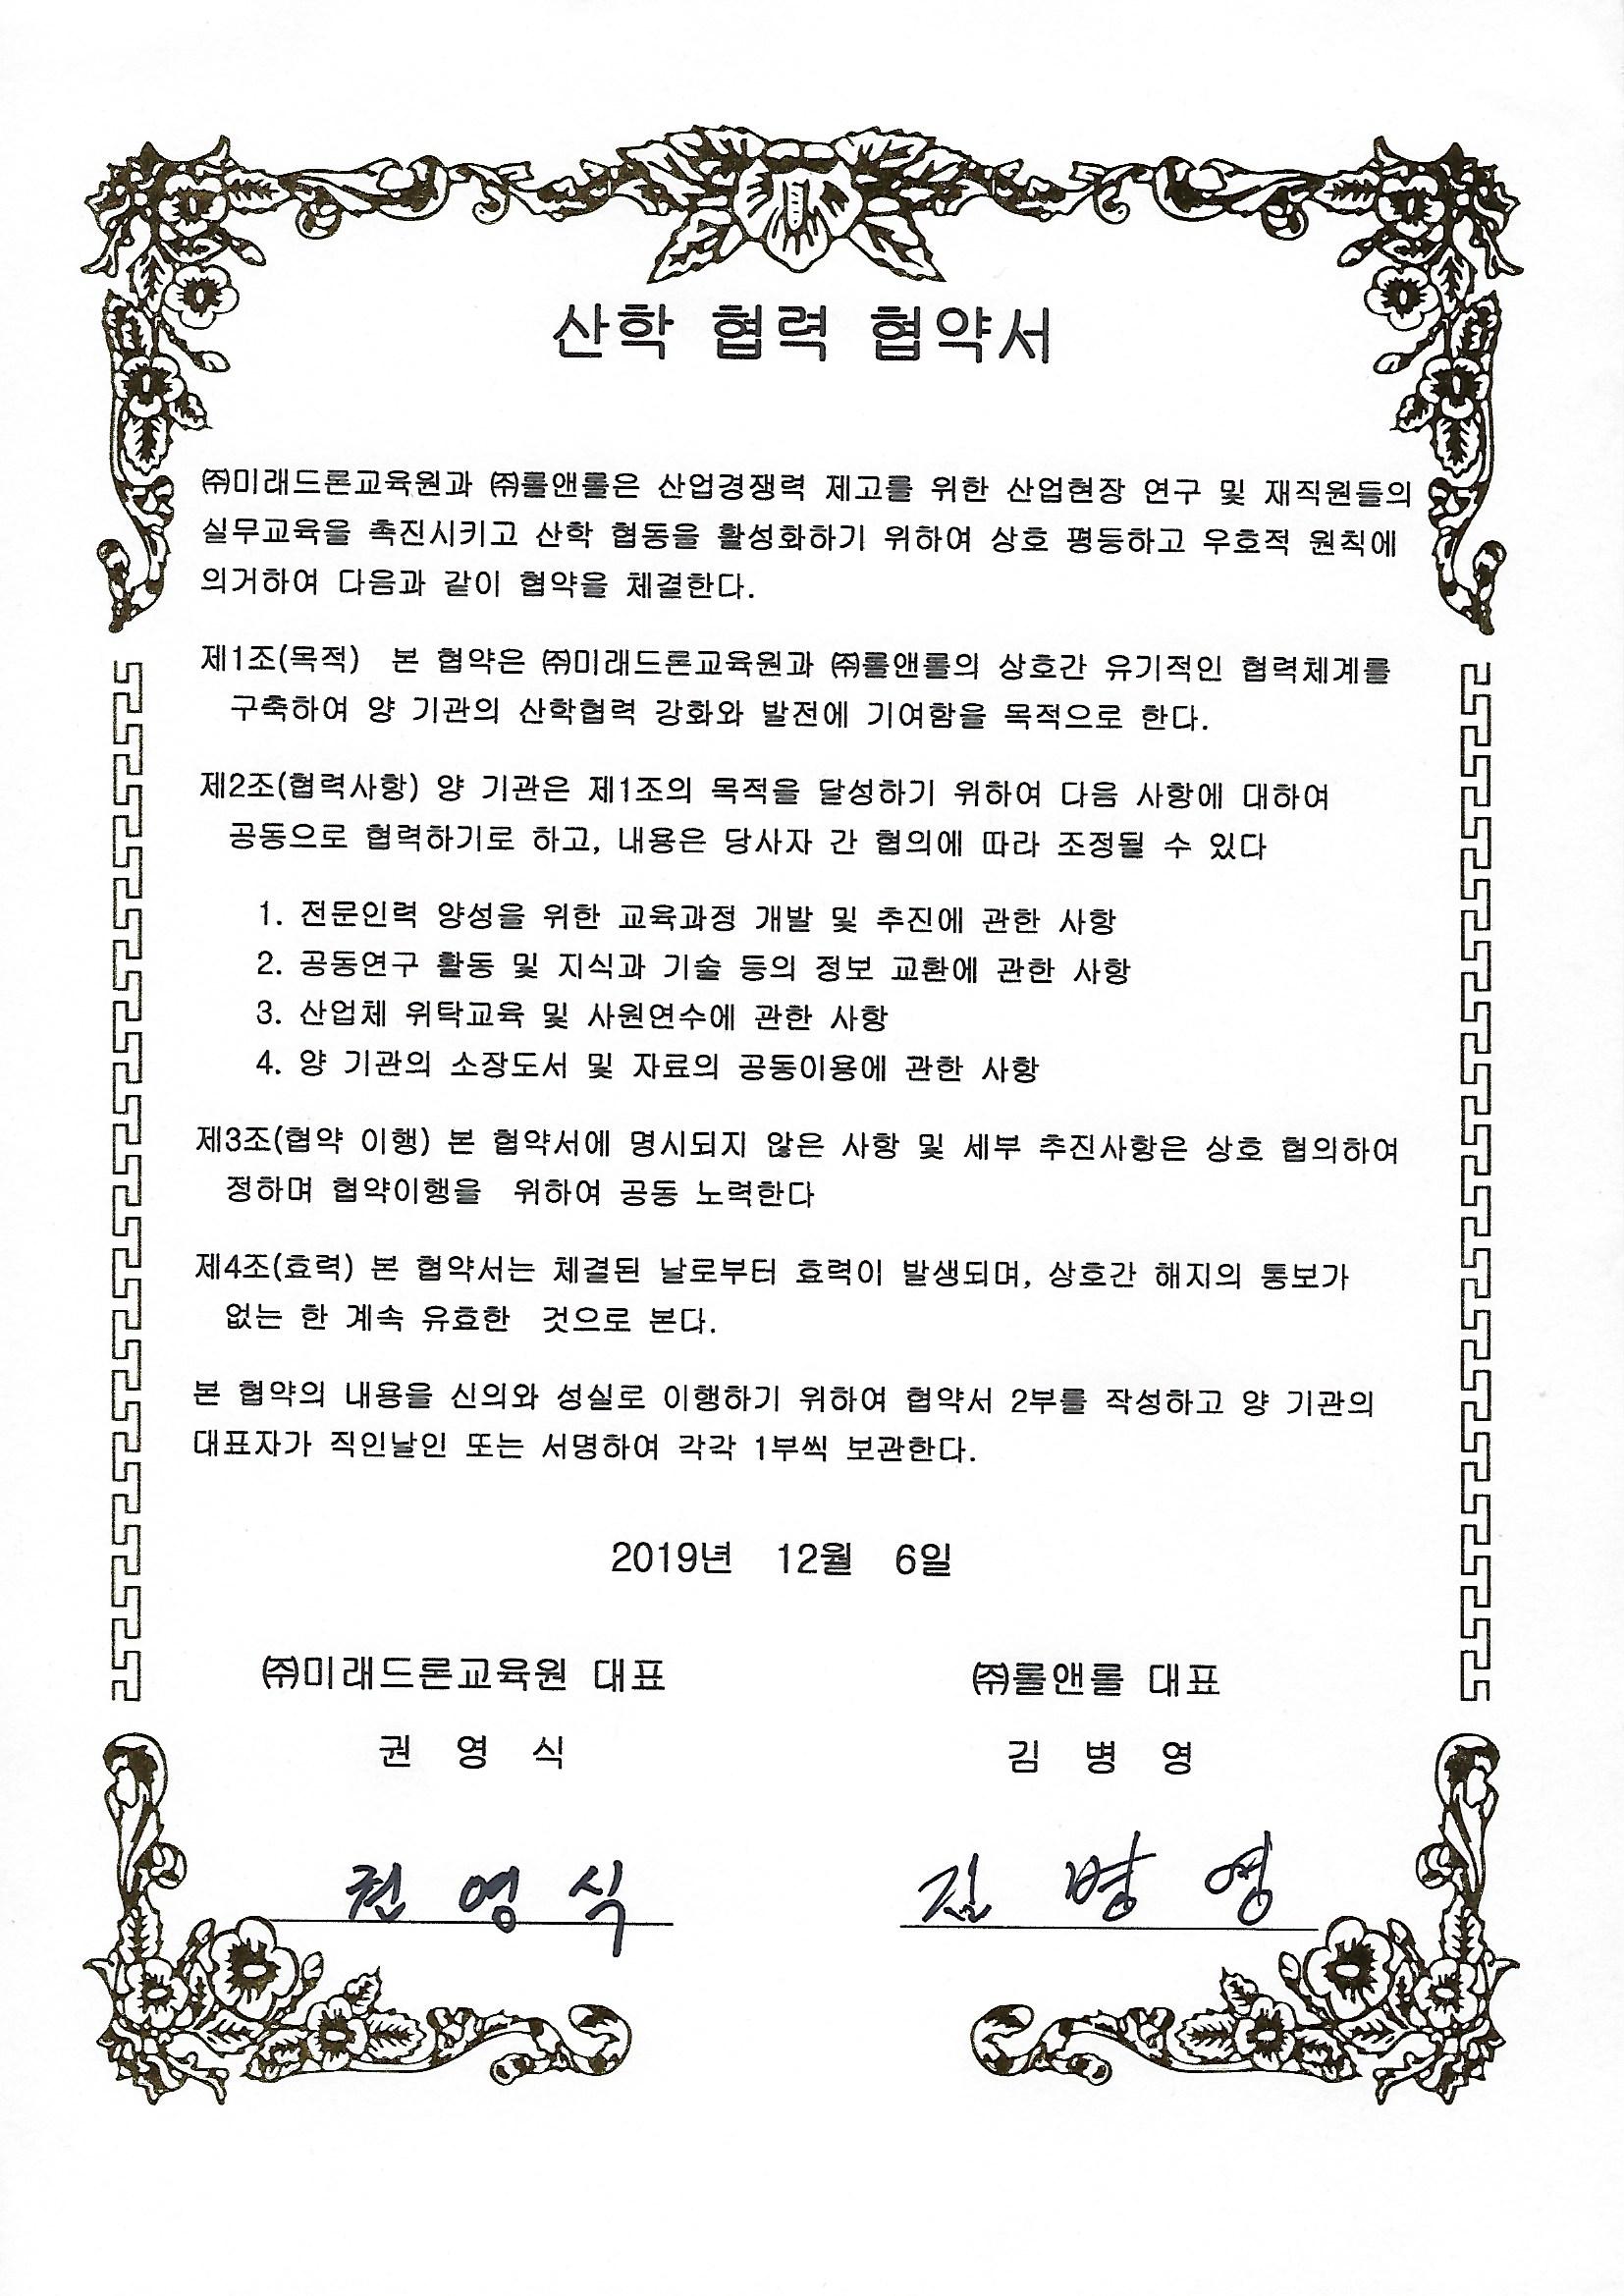 산학 협력 협약서
㈜미래드론교육원과 ㈜롤앤롤은 산업경쟁력 제고를 위한 산업현장 연구 및 재직원들의
실무교육을 촉진시키고 산학 협동을 활성화하기 위하여 상호 평등하고 우호적 원칙에
의거하여 다음과 같이 협약을 체결한다.
제1조(목적) 본 협약은 ㈜미래드론교육원과 ㈜롤앤롤의 상호간 유기적인 협력체계를
구축하여 양 기관의 산학협력 강화와 발전에 기여함을 목적으로 한다.
제2조(협력사항) 양 기관은 제1조의 목적을 달성하기 위하여 다음 사항에 대하여
공동으로 협력하기로 하고, 내용은 당사자 간 협의에 따라 조정될 수 있다
1. 전문인력 양성을 위한 교육과정 개발 및 추진에 관한 사항
2. 공동연구 활동 및 지식과 기술 등의 정보 교환에 관한 사항
3. 산업체 위탁교육 및 사원연수에 관한 사항
4. 양 기관의 소장도서 및 자료의 공동이용에 관한 사항
제3조(협약 이행) 본 협약서에 명시되지 않은 사항 및 세부 추진사항은 상호 협의하여
정하며 협약이행을 위하여 공동 노력한다
제4조(효력) 본 협약서는 체결된 날로부터 효력이 발생되며, 상호간 해지의 통보가
없는 한 계속 유효한 것으로 본다.
본 협약의 내용을 신의와 성실로 이행하기 위하여 협약서 2부를 작성하고 양 기관의
대표자가 직인날인 또는 서명하여 각각 1부씩 보관한다.
2019년 12월 6일
㈜미래드론교육원 대표 ㈜롤앤롤 대표
권 영 식 김 병 영
권 영 식 김 병 영